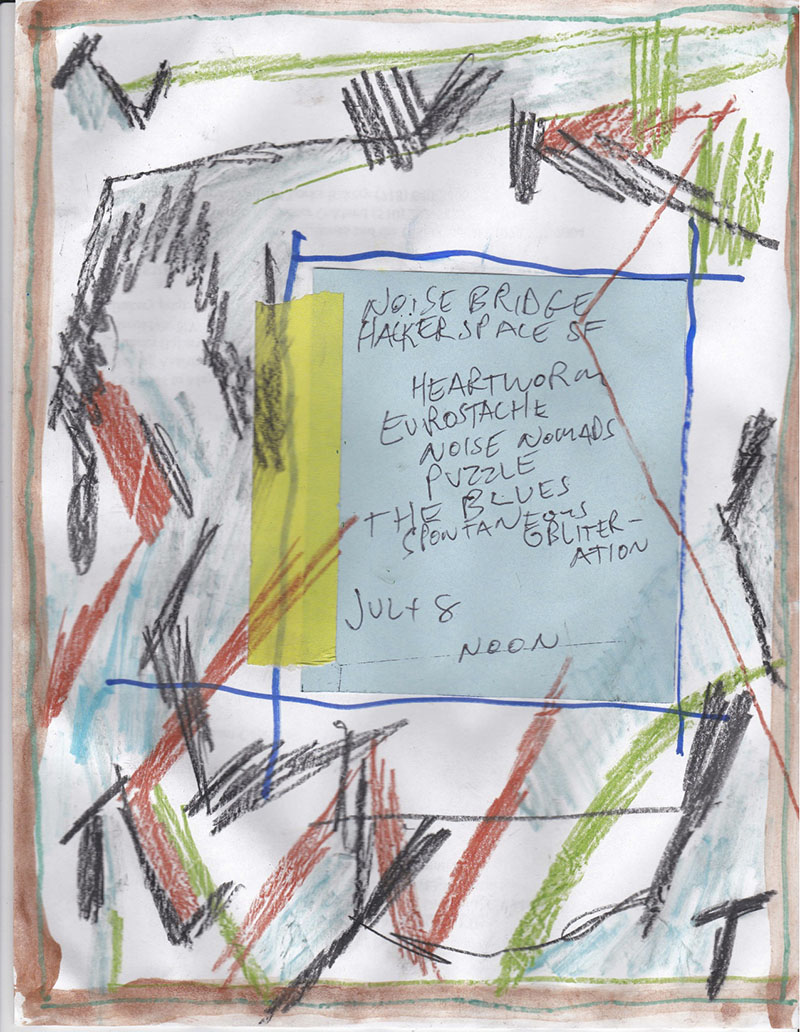 NOISE BRIDGE
HACKER SPACE SF
HEARTWORM
EUROSTACHE
NOISE NOMADS
PUZZLE
THE BLUES
SPONTANEOUS
OBLITER-
ATION
JULY 8
NOON